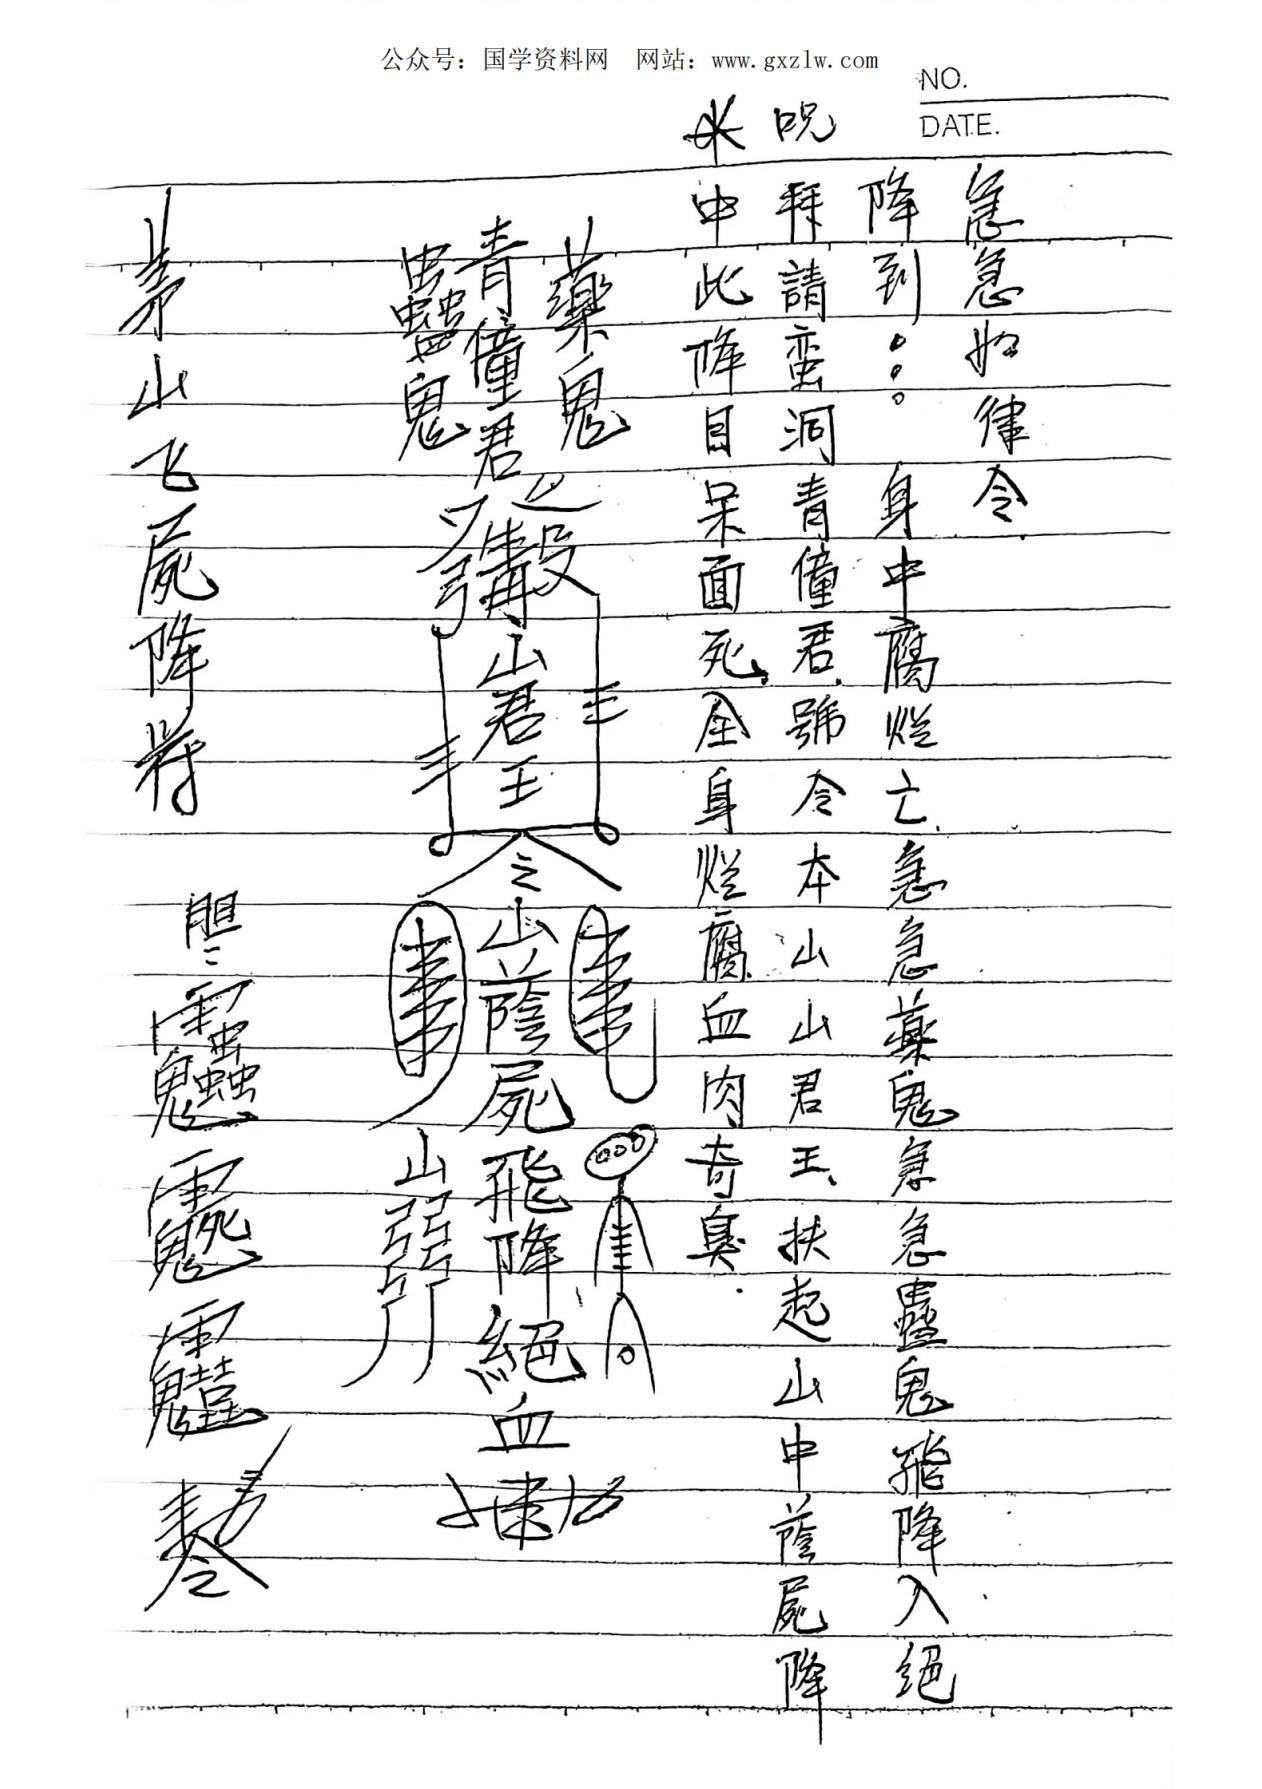 公众号：国学资料网 网站：www.gxzlw.com
NO.
DATE.
茅山飞屍降符
胆
蠱鬼
青僮君
藥鬼
山君王
令
山蔭屍飛降絕血
山
中此降目呆面死、全身烂腐血肉奇臭.
咒
拜請蛮洞青僮君、號令本山山君王、扶起山中蔭屍降
降到：。身中腐烂亡、急急藥鬼急急蠱鬼飛降入絕
急急如律令.